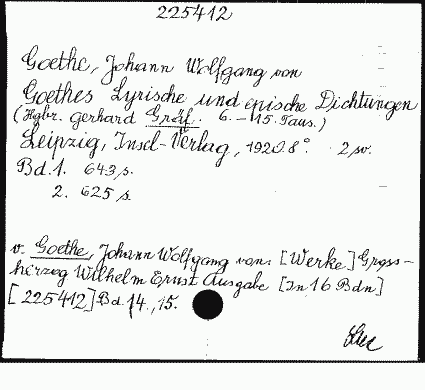 225412
Goethe, Johann Wolfgang von
Goethes Lyrische und epische Dichtungen
(Hgbr. Gerhard Gräf. 6.-15. Taus.)
Leipzig, Insel-Verlag, 1920. 8°. 2 sv.
Bd. 1. 643 s.
2. 625 s.
v. Goethe, Johann Wolfgang von: [Werke] Gross-
herzog Wilhelm Ernst Ausgabe [In 16 Bdn]
[225412] Bd. 14., 15.